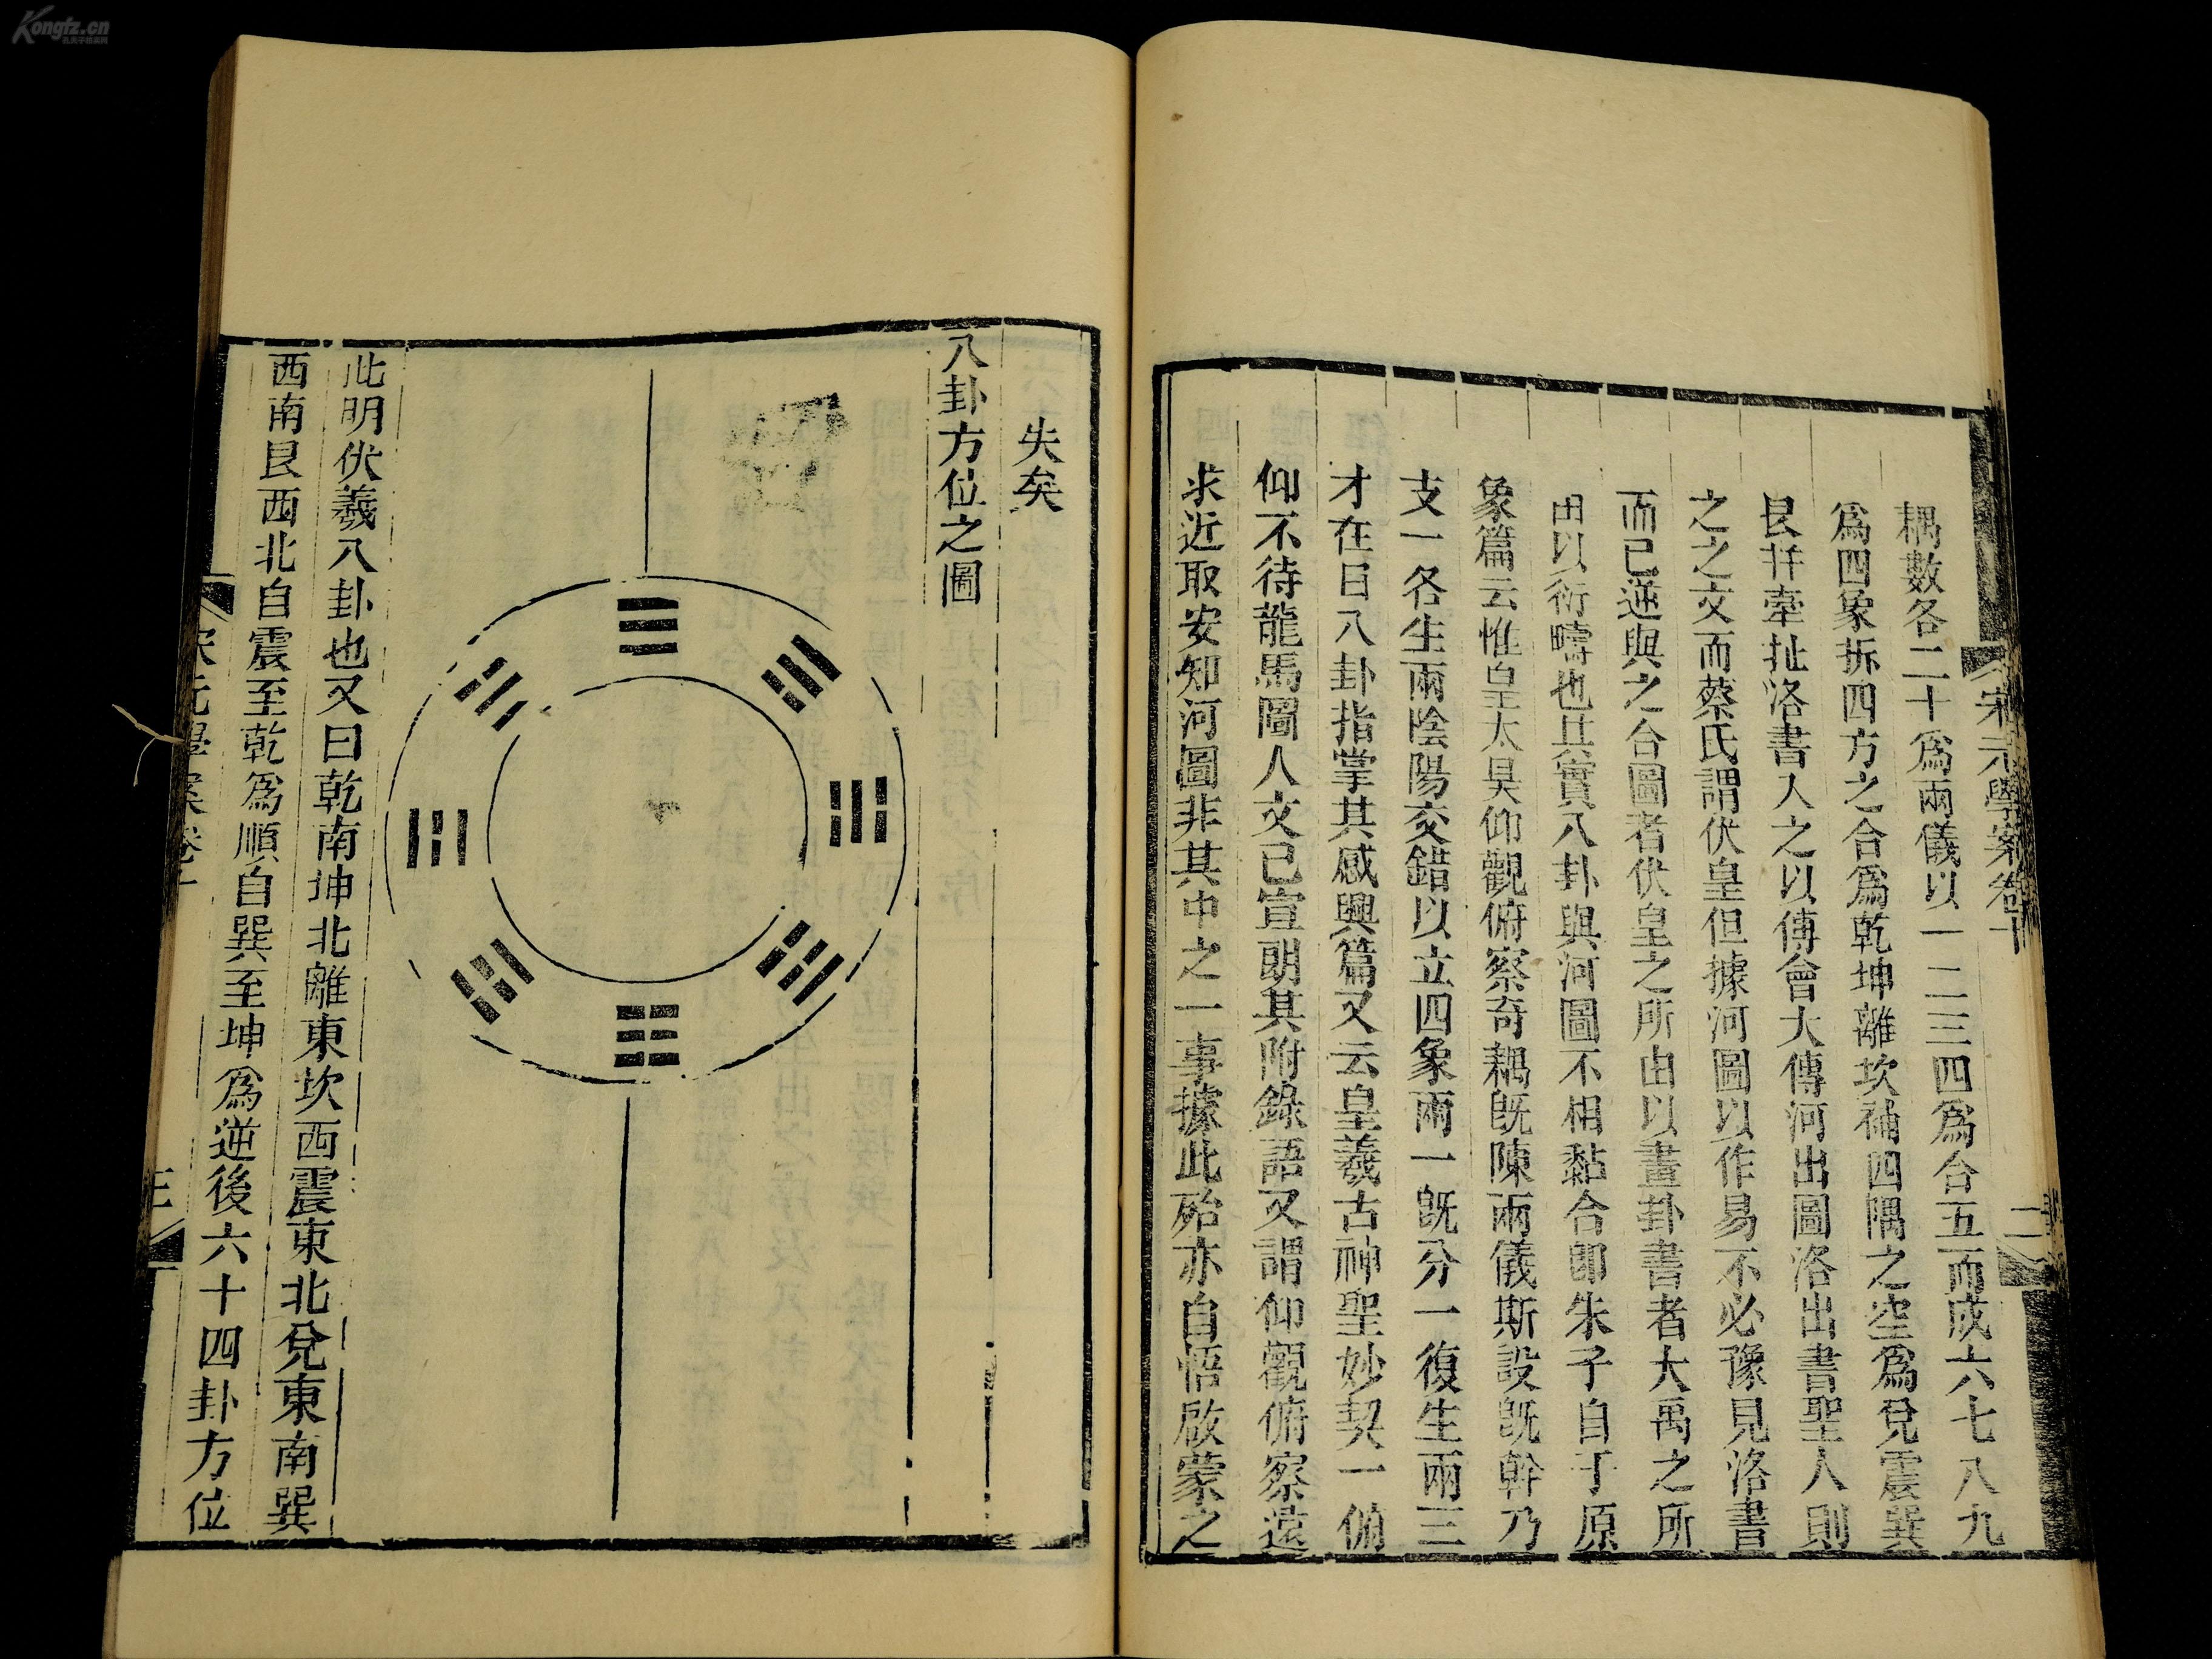 Kongfz.cn
宋元學案卷十
二
耦數各二十爲兩儀以一二三四爲合五而成六七八九
爲四象拆四方之合爲乾坤離坎補四隅之空爲兌震巽
艮并牽扯洛書入之以傅會大傳河出圖洛出書聖人則
之之文而蔡氏謂伏皇但據河圖以作易不必豫見洛書
而已逆與之合圖者伏皇之所由以畫卦書者大禹之所
由以衍疇也其實八卦與河圖不相黏合卽朱子自于原
象篇云惟皇太昊仰觀俯察奇耦旣陳兩儀斯設旣幹乃
支一各生兩陰陽交錯以立四象兩一旣分一復生兩三
才在目八卦指掌其感興篇又云皇羲古神聖妙契一俯
仰不待龍馬圖人文已宣朗其附錄語又謂仰觀俯察遠
求近取安知河圖非其中之一事據此殆亦自悟啟蒙之
失矣
八卦方位之圖
此明伏羲八卦也又曰乾南坤北離東坎西震東北兌東南巽
西南艮西北自震至乾爲順自巽至坤爲逆後六十四卦方位
宋元學案卷十
三